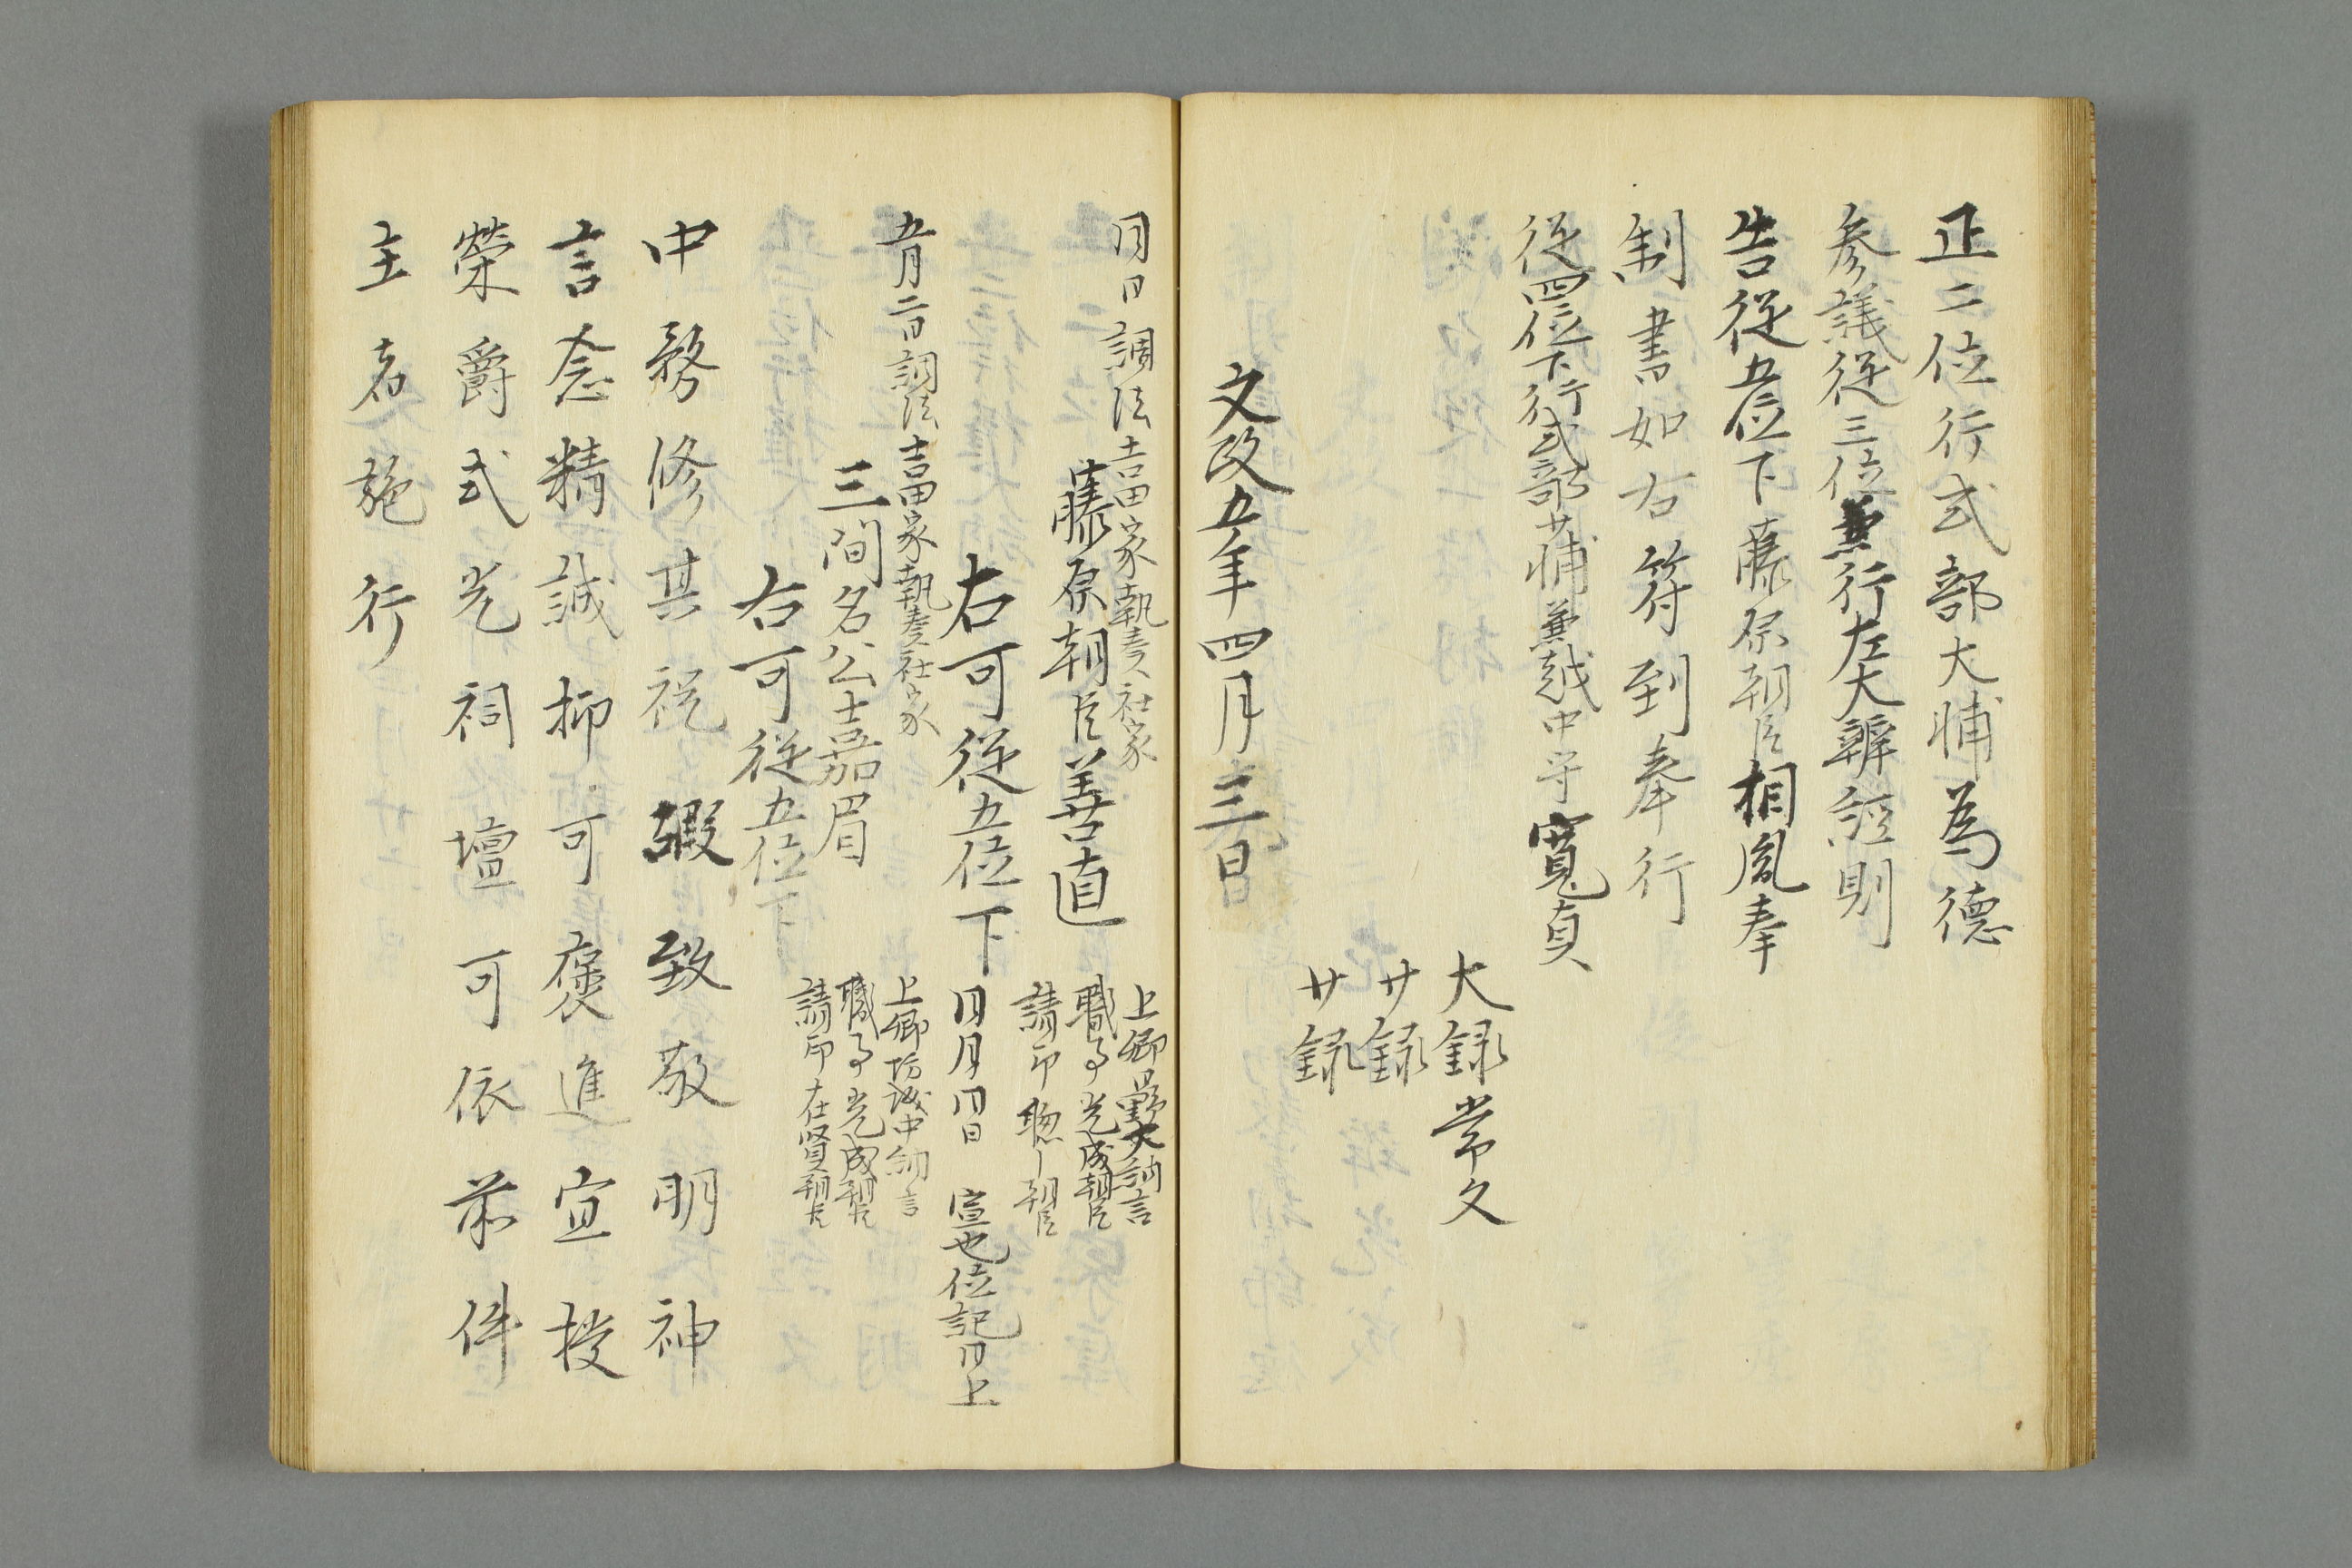 正二位行式部大輔為德
参議従三位兼行左大辨経則
告従五位下藤原朝臣相胤奉
制書如右符到奉行
従四位下行式部少輔兼越中守寛貞
大録常久
少録
少録
文政五年四月三日
同日調法吉田家執奏社家
藤原朝臣善直
上卿大納言
職事光成朝臣
請印聰ー朝臣
右可従五位下
同月同日 宣也位記同上
五月二日調法吉田家執奏社家
三間名公士嘉眉
上卿坊城中納言
職事光成朝臣
請印在賢朝臣
右可従五位下
中務修其祝嘏致敬明神
言念精誠抑可褒進宜授
榮爵式光祠壇可依前件
主者施行